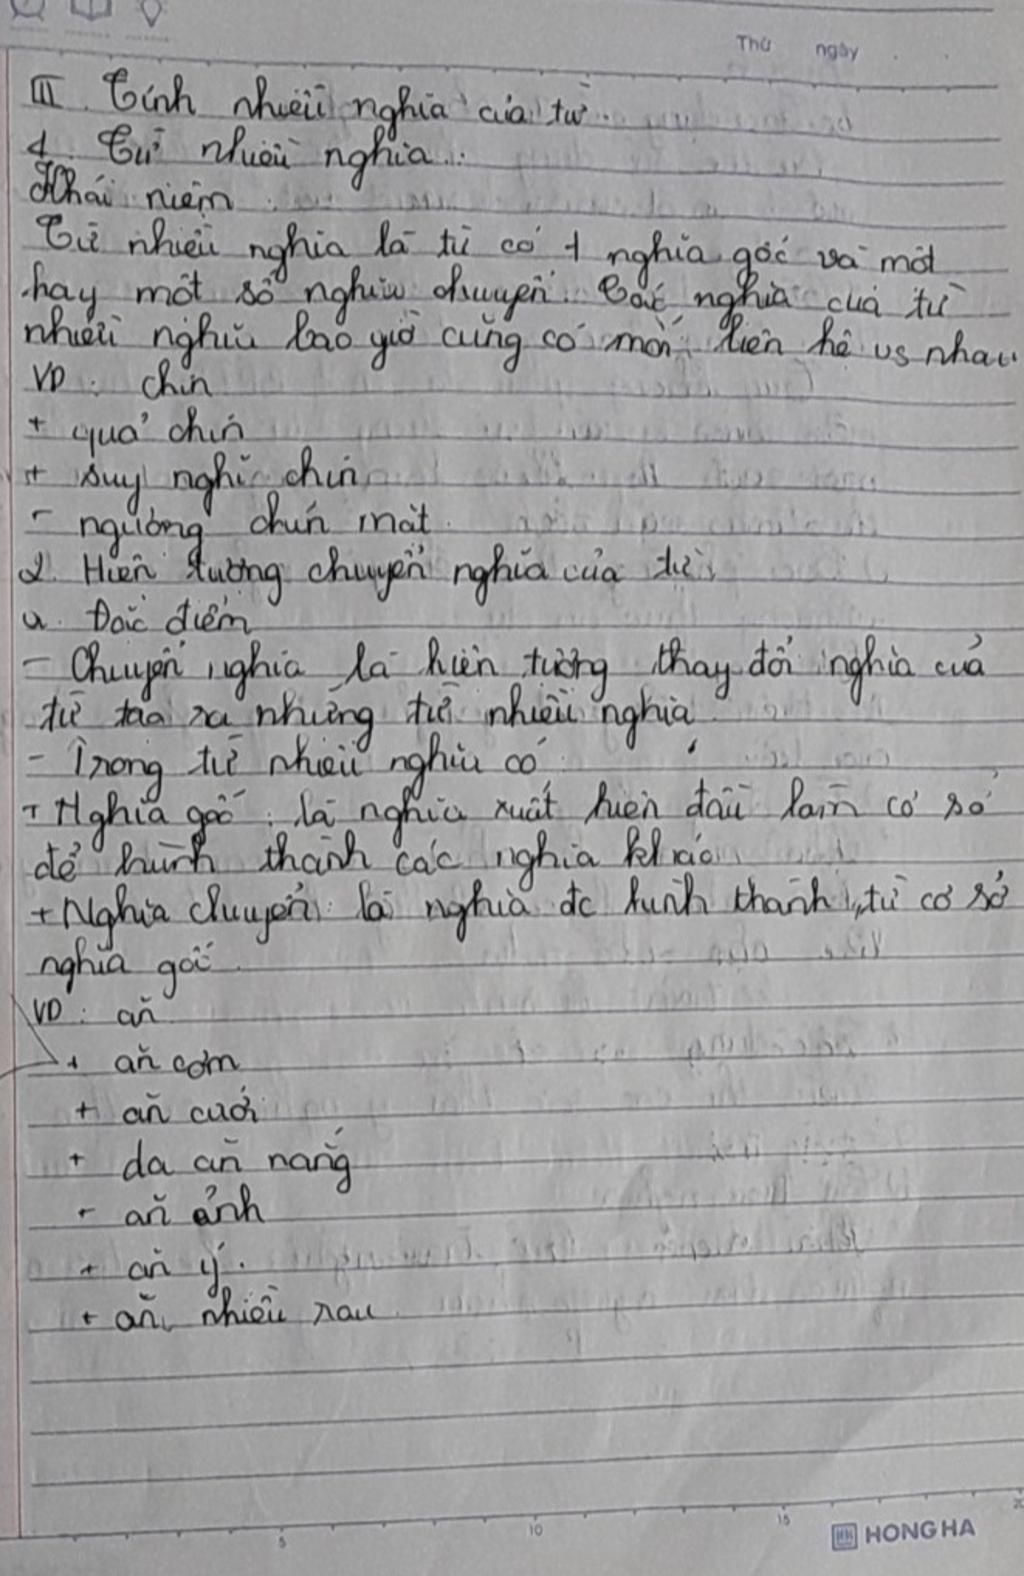 Thứ ngày
III. Tính nhiều nghĩa của từ.
1. Từ nhiều nghĩa:
Khái niệm
Từ nhiều nghĩa là từ có 1 nghĩa gốc và một
hay một số nghĩa chuyển. Các nghĩa của từ
nhiều nghĩa bao giờ cũng có mối liên hệ vs nhau
VD: chín
+ quả chín
+ suy nghĩ chín
- ngượng chín mặt.
2. Hiện tượng chuyển nghĩa của từ.
a. Đặc điểm
- Chuyển nghĩa là hiện tượng thay đổi nghĩa của
từ tạo ra những từ nhiều nghĩa.
- Trong từ nhiều nghĩa có
+ Nghĩa gốc: là nghĩa xuất hiện đầu làm cơ sở
để hình thành các nghĩa khác.
+ Nghĩa chuyển: là nghĩa đc hình thành từ cơ sở
nghĩa gốc.
VD: ăn
+ ăn cơm
+ ăn cưới
+ da ăn nắng
- ăn ảnh
+ ăn ý.
+ ăn nhiều rau
5 10 15 20
HONG HA